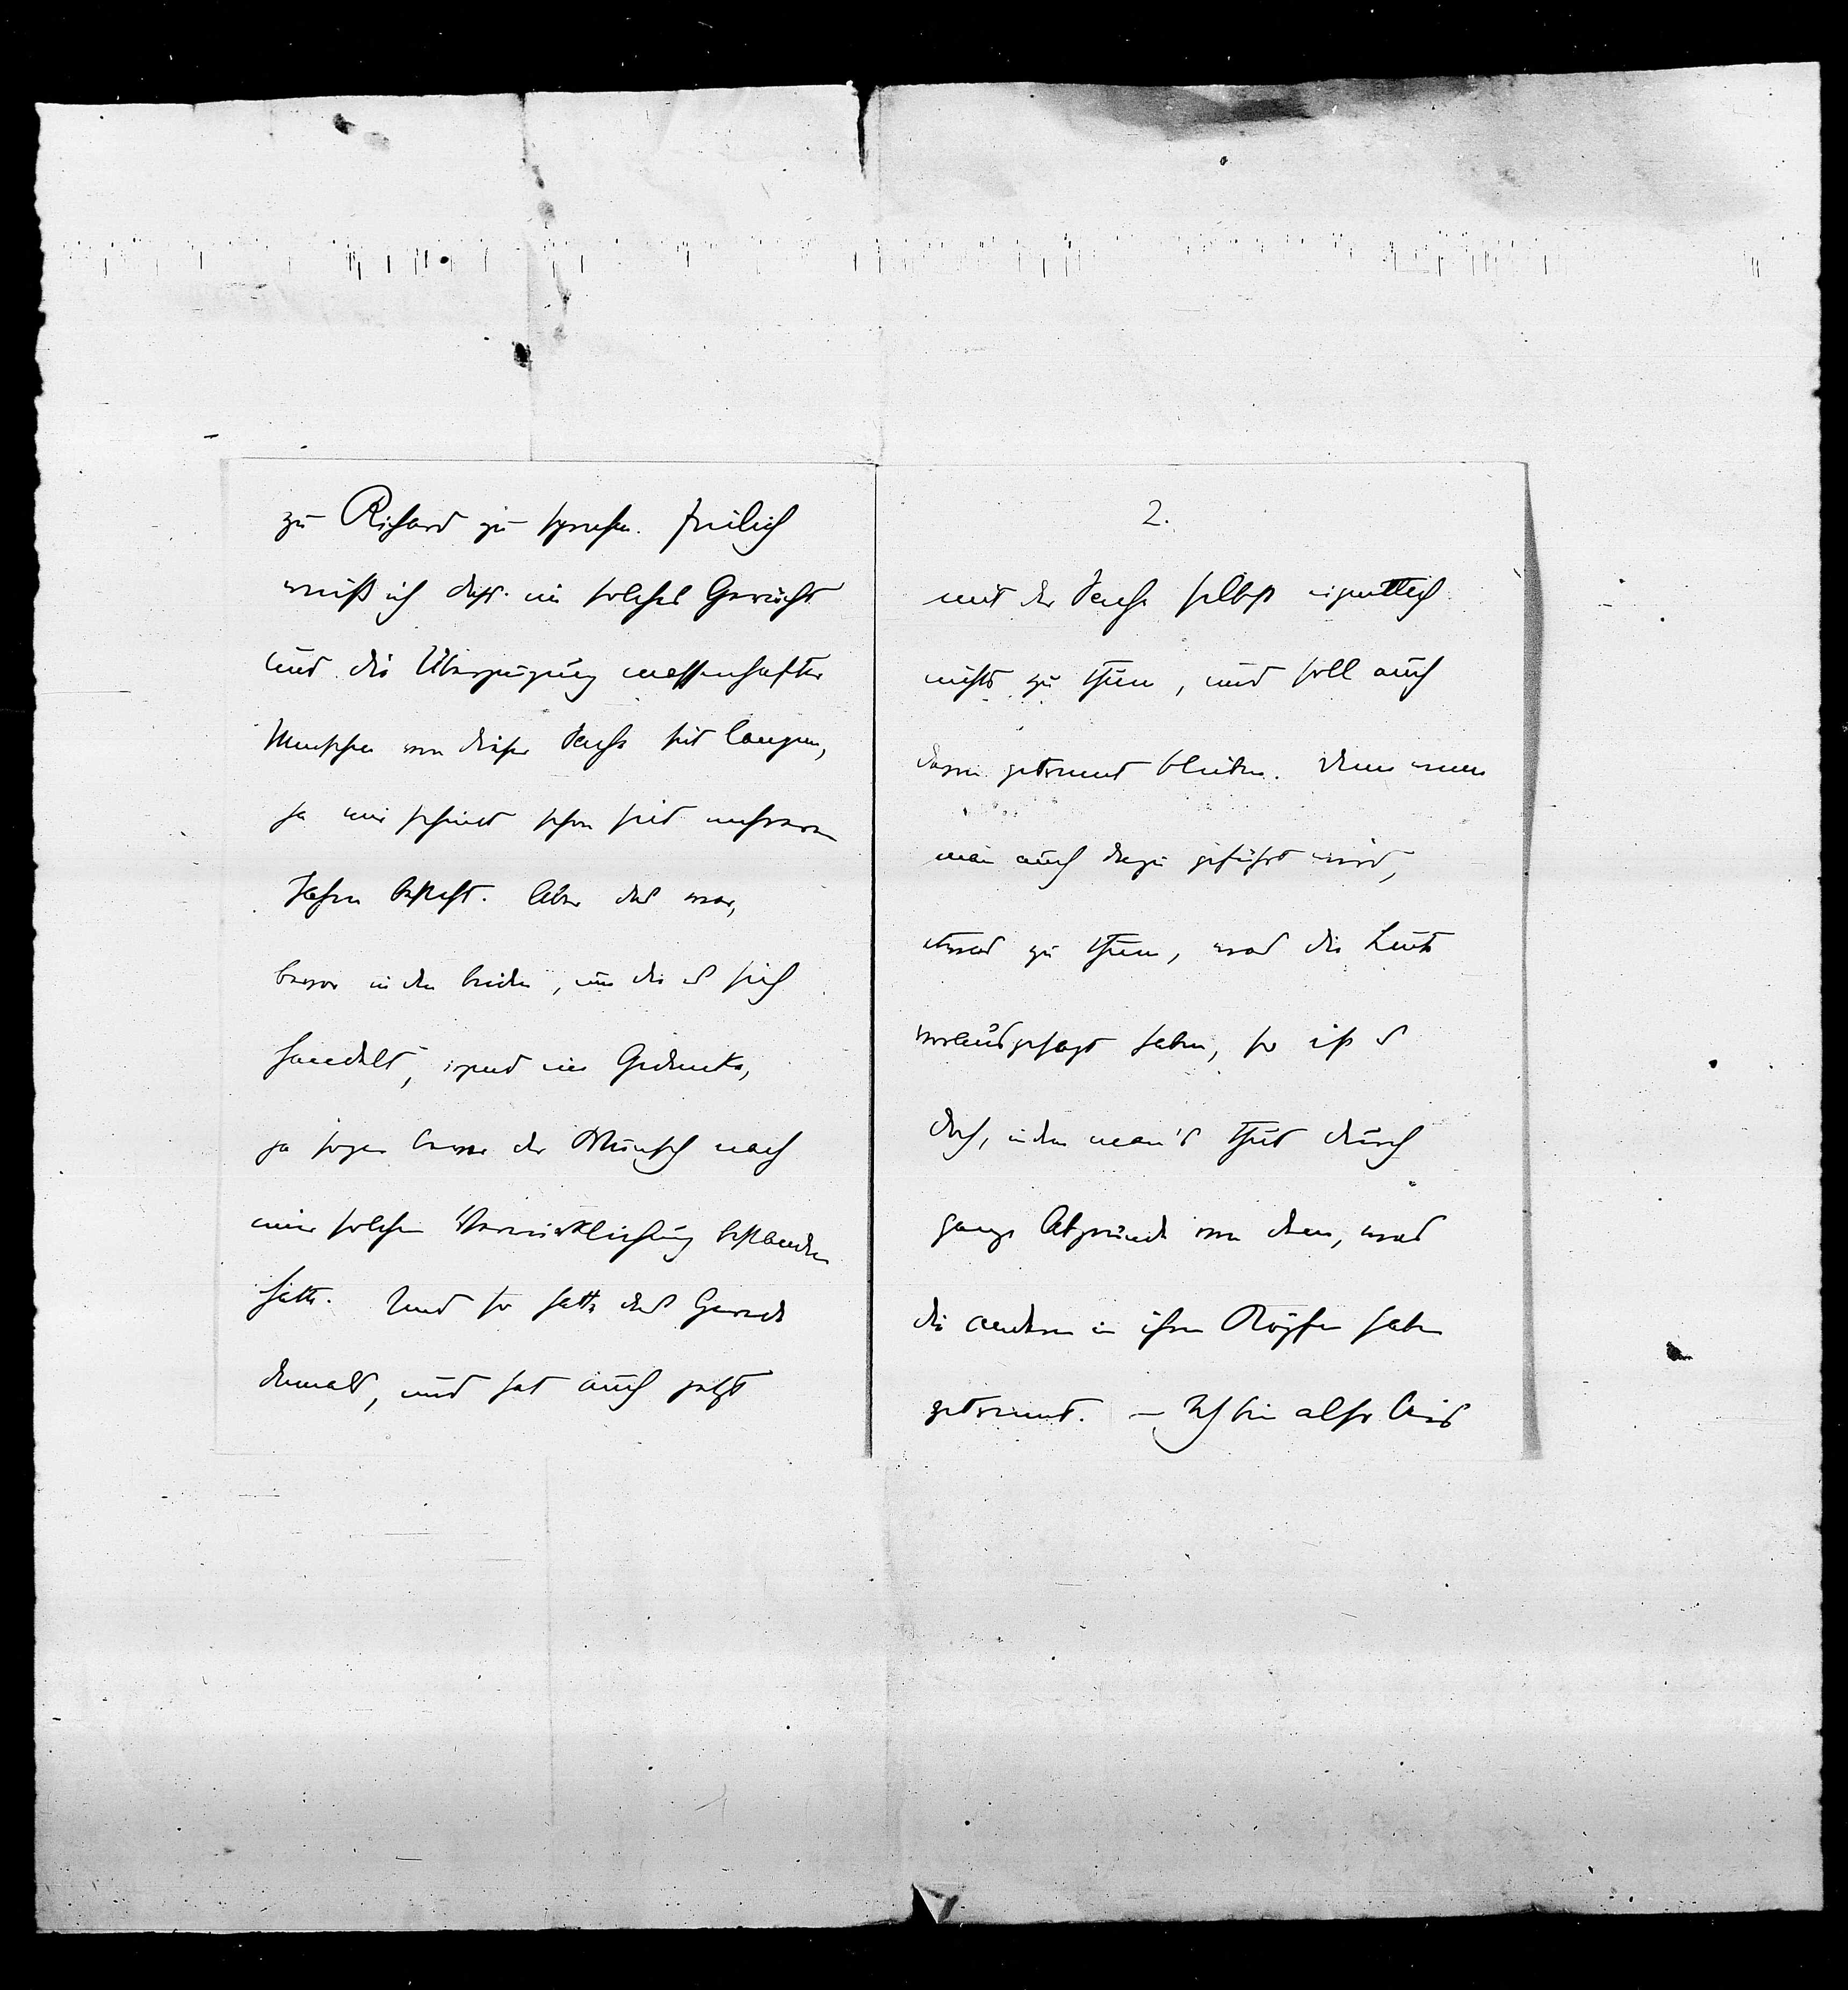 zu Richard zu sprechen. Freilich
weiß ich daß ein solches Gerücht
und die Überzeugung massenhafter
Menschen von dieser Sache seit langem,
ja wie scheint schon seit mehreren
Jahren besteht. Aber das war,
bevor in den beiden, um die es sich
handelt, irgend ein Gedanke,
ja sogar bevor der Wunsch nach
einer solchen Verwirklichung bestanden
hatte. Und so hatte das Gerede
damals, und hat auch jetzt
2.
mit der Sache selbst eigentlich
nichts zu thun, und soll auch
davon getrennt bleiben. Denn wenn
man auch dazu geführt wird,
etwas zu thun, was die Leute
vorausgesagt haben, so ist es
doch, indem man's thut durch
ganze Abgründe von dem, was
die andern in ihren Köpfen haben
getrennt. — Ich bin also